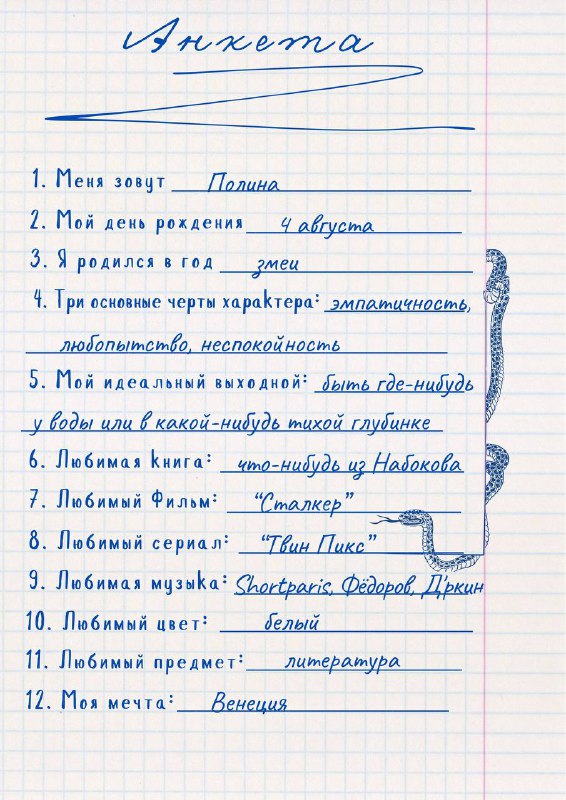 Анкета
1. Меня зовут Полина
2. Мой день рождения 4 августа
3. Я родился в год змеи
4. Три основные черты характера: эмпатичность,
любопытство, неспокойность
5. Мой идеальный выходной: быть где-нибудь
у воды или в какой-нибудь тихой глубинке
6. Любимая книга: что-нибудь из Набокова
7. Любимый Фильм: “Сталкер”
8. Любимый сериал: “Твин Пикс”
9. Любимая музыка: Shortparis, Фёдоров, Д'ркин
10. Любимый цвет: белый
11. Любимый предмет: литература
12. Моя мечта: Венеция